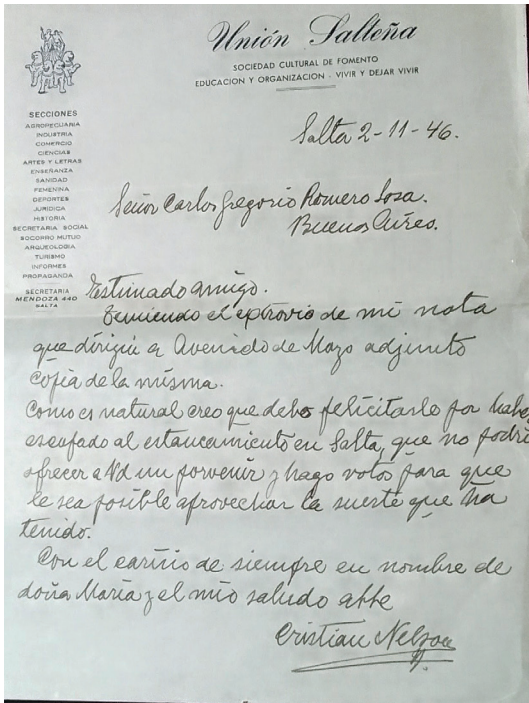 Unión Salteña
SOCIEDAD CULTURAL DE FOMENTO
EDUCACION Y ORGANIZACION - VIVIR Y DEJAR VIVIR
SECCIONES
AGROPECUARIA
INDUSTRIA
COMERCIO
CIENCIAS
ARTES Y LETRAS
ENSEÑANZA
SANIDAD
FEMENINA
DEPORTES
JURIDICA
HISTORIA
SECRETARIA SOCIAL
SOCORRO MUTUO
ARQUEOLOGIA
TURISMO
INFORMES
PROPAGANDA
SECRETARIA
MENDOZA 440
SALTA
Salta 2-11-46.
Señor Carlos Gregorio Romero Sosa.
Buenos Aires.
Estimado amigo.
Temiendo el extravio de mi nota
que dirigiera Avenida de Mayo adjunto
copia de la misma.
Como es natural creo que debo felicitarlo por habe
escapado al estancamiento en Salta, que no podri
ofrecer a Vd un porvenir y hago votos para que
le sea posible aprovechar la suerte que ha
tenido.
Con el cariño de siempre en nombre de
doña María y el mío saludo atte
Cristian Nelson